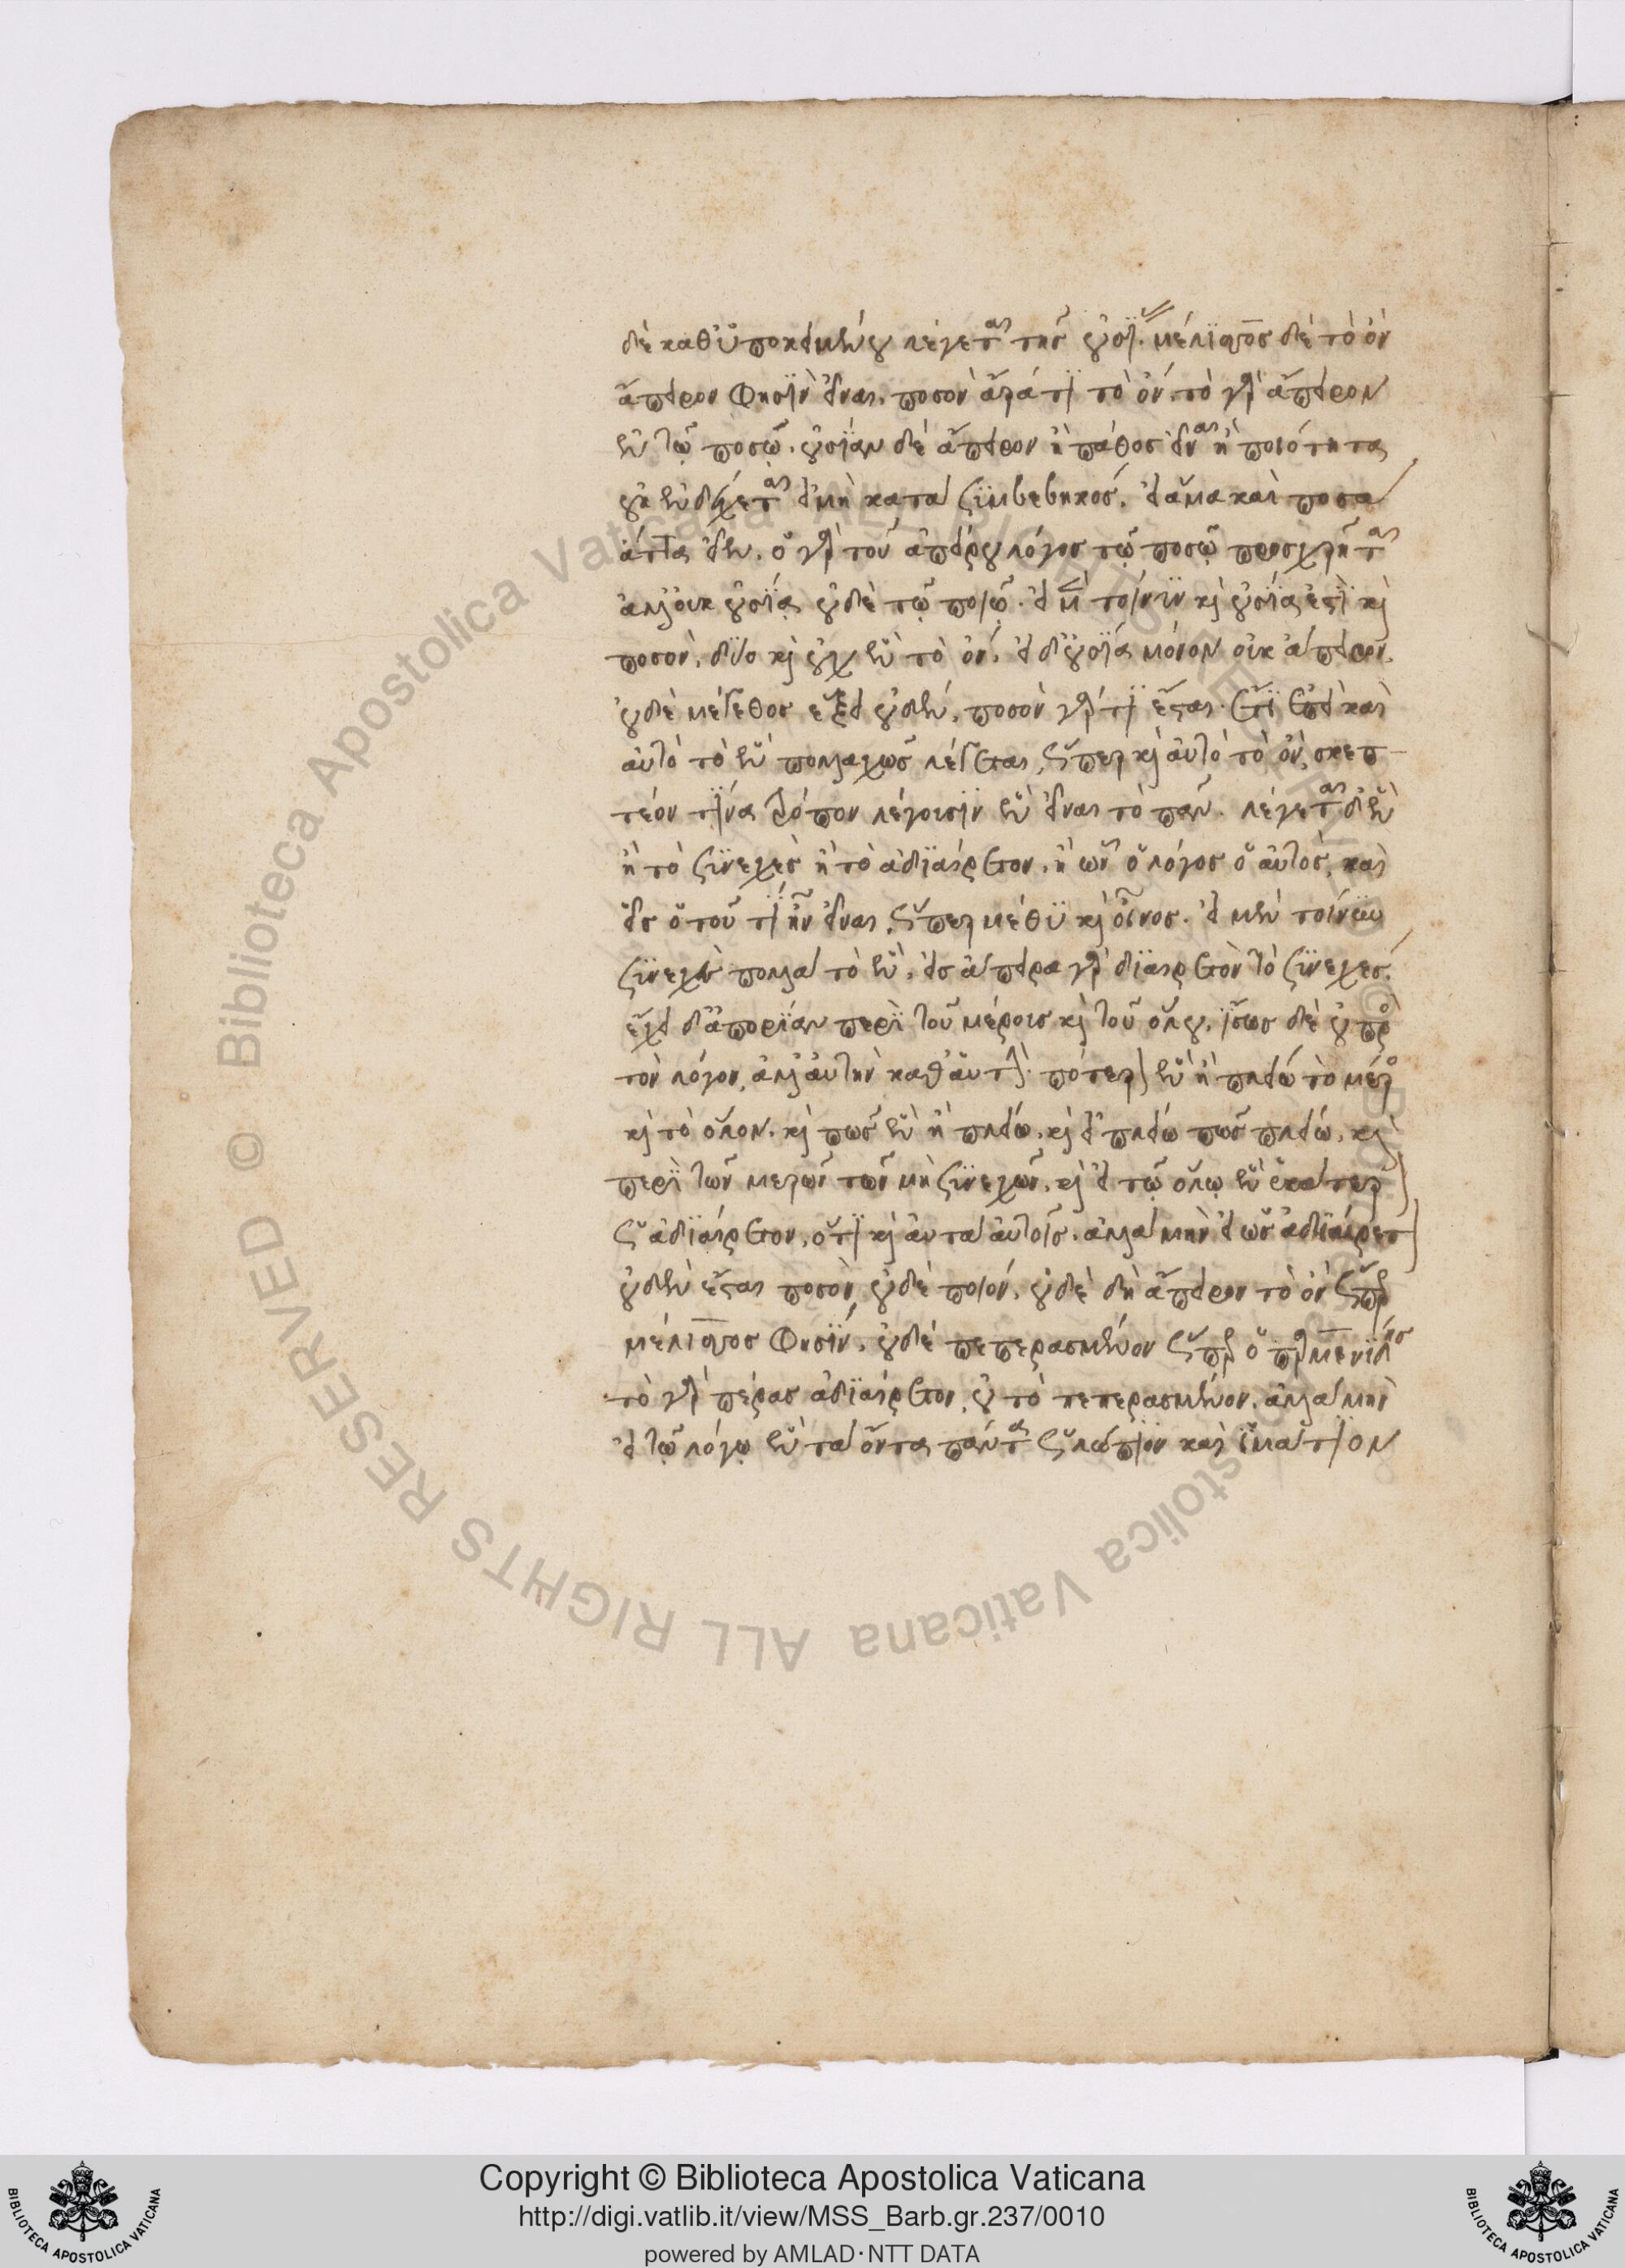 δὲ καθ' ὑποκειμένου λέγεται τῆς οὐσίας. μέλισσος δὲ τὸ ὂν
ἄπειρον φησὶν εἶναι. ποσὸν ἄρα τι τὸ ὄν. τὸ γὰρ ἄπειρον
ἐν τῷ ποσῷ. οὐσίαν δὲ ἄπειρον ἢ πάθος εἶναι ἢ ποιότητα
οὐκ ἐνδέχεται εἰ μὴ κατὰ συμβεβηκός. εἰ ἅμα καὶ ποσὰ
ἄττα εἶεν. ὁ γὰρ τοῦ ἀπείρου λόγος τῷ ποσῷ προσχρῆται
ἀλλ' οὐκ οὐσίᾳ οὐδὲ τῷ ποιῷ. εἰ μὲν τοίνυν καὶ οὐσία ἐστὶ καὶ
ποσὸν, δύο καὶ οὐχ ἓν τὸ ὄν. εἰ δ' οὐσία μόνον οὐκ ἄπειρον,
οὐδὲ μέγεθος ἕξει οὐδέν. ποσὸν γάρ τι ἔσται. ἔτι ἐπεὶ καὶ
αὐτὸ τὸ ἓν πολλαχῶς λέγεται, ὥσπερ καὶ αὐτὸ τὸ ὂν, σκεπ-
τέον τίνα τρόπον λέγουσιν ἓν εἶναι τὸ πᾶν. λέγεται δ' ἓν
ἢ τὸ συνεχὲς ἢ τὸ ἀδιαίρετον. ἢ ὧν ὁ λόγος ὁ αὐτὸς, καὶ
εἷς ὁ τοῦ τί ἦν εἶναι. ὥσπερ μέθυ καὶ οἶνος. εἰ μὲν τοίνυν
συνεχὲς πολλὰ τὸ ἕν. εἰς ἄπειρα γὰρ διαιρετὸν τὸ συνεχές.
ἔχει δ' ἀπορίαν περὶ τοῦ μέρους καὶ τοῦ ὅλου. ἴσως δὲ οὐ πρὸς
τὸν λόγον, ἀλλ' αὐτὴν καθ' αὑτήν. πότερον ἓν ἢ πλείω τὸ μέρος
καὶ τὸ ὅλον. καὶ πῶς ἓν ἢ πλείω. καὶ εἰ πλείω πῶς πλείω. καὶ
περὶ τῶν μερῶν τῶν μὴ συνεχῶν. καὶ εἰ τῷ ὅλῳ ἓν ἑκάτερον
ὡς ἀδιαίρετον, ὅτι καὶ αὐτὰ αὑτοῖς. ἀλλὰ μὴν εἰ ὡς ἀδιαίρετον
οὐδὲν ἔσται ποσὸν, οὐδὲ ποιόν. οὐδὲ δὴ ἄπειρον τὸ ὂν ὥσπερ
μέλισσος φησίν. οὐδὲ πεπερασμένον ὥσπερ ὁ παρμενίδης
τὸ γὰρ πέρας ἀδιαίρετον, οὐ τὸ πεπερασμένον. ἀλλὰ μὴν
εἰ τῷ λόγῳ ἓν τὰ ὄντα πάντα ὡς λώπιον καὶ ἱμάτιον
Copyright © Biblioteca Apostolica Vaticana
http://digi.vatlib.it/view/MSS_Barb.gr.237/0010
powered by AMLAD·NTT DATA